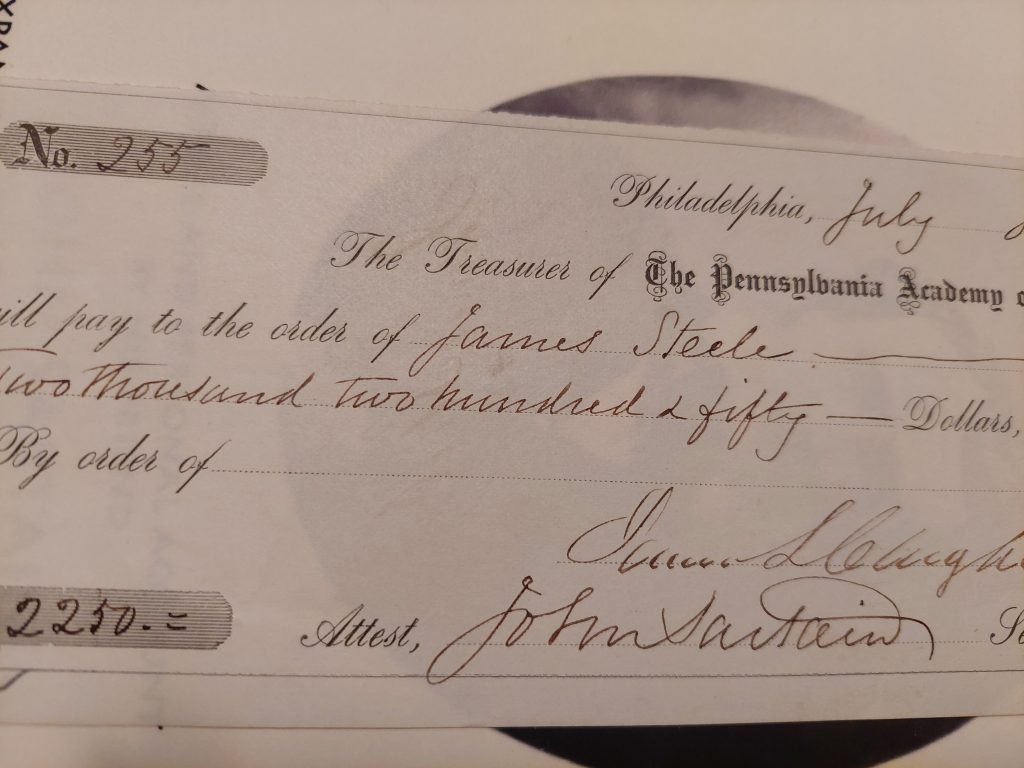 No. 255
Philadelphia, July
The Treasurer of The Pennsylvania Academy
ill pay to the order of James Steele
Two thousand two hundred & fifty — Dollars,
By order of
James L Clagh
2250.= Attest, John Sartain